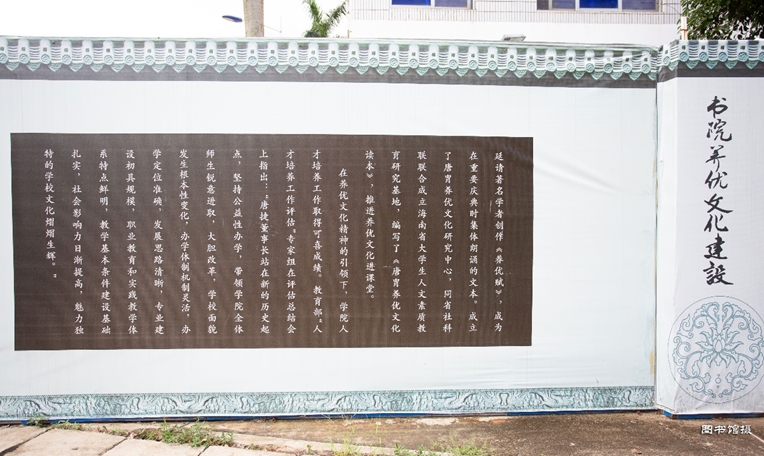 书院养优文化建設
延请著名学者创作《养优赋》，成为
在重要庆典时集体朗诵的文本。成立
了唐胄养优文化研究中心，同省社科
联联合成立海南省大学生人文素质教
育研究基地，编写了《唐胄养优文化
读本》，推进养优文化进课堂。
在养优文化精神的引领下，学院人
才培养工作取得可喜成绩。教育部“人
才培养工作评估”专家组在评估总结会
上指出：“唐捷董事长站在新的历史起
点，坚持公益性办学，带领学院全体
师生锐意进取，大胆改革，学校面貌
发生根本性变化，办学体制机制灵活，办
学定位准确，发展思路清晰，专业建
设初具规模，职业教育和实践教学体
系特点鲜明，教学基本条件建设基础
扎实，社会影响力日渐提高，魅力独
特的学校文化熠熠生辉。”
图书馆摄